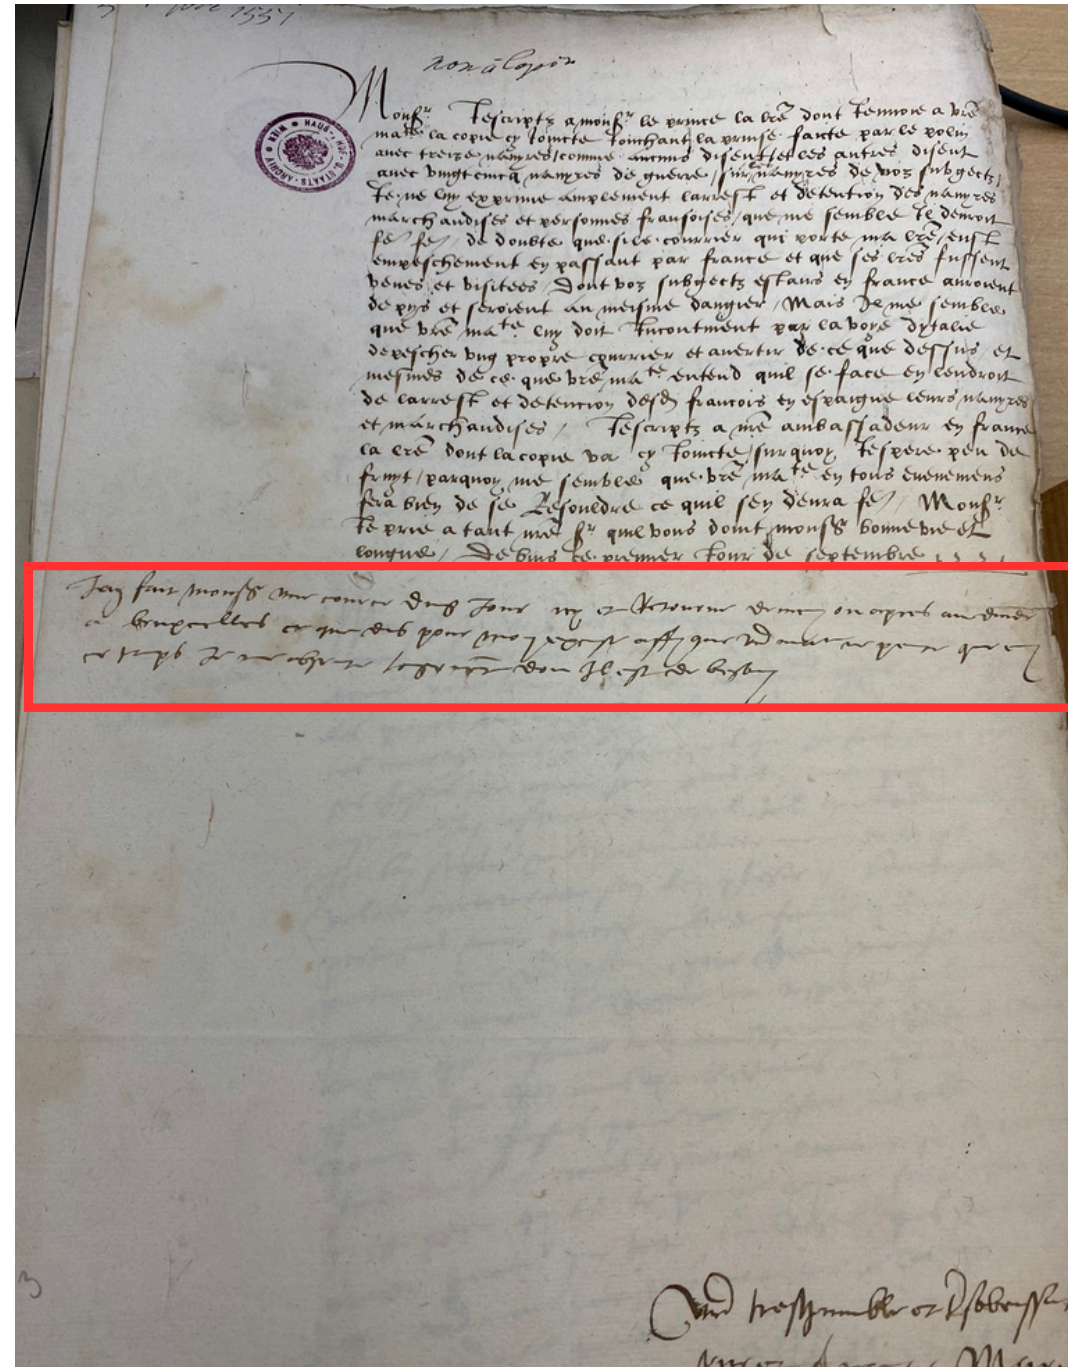 1551
non a copier
HAUS-, HOF- U. STAATS-ARCHIV WIEN
Monsr Jescriptz a monsr le prince la lre dont Jenvoie a vre
mate la copie cy Joincte touchant la prinse faicte par le polin
avec treize navyres / comme aucuns disent et les autres disent
avec vingtcincq navyres de guerre / sur les navyres de voz subgectz /
Je ne luy exprime amplement larrest et detention des navyres
marchandises et personnes fransoises / que me semble Il devroit
fe fe / de doubte que si le courrier qui porte ma lre / eust
empeschement en passant par france et que ses lres fussent
veues et visitees / dont voz subgectz estans en france auroient
de pys et seroient au mesme dangier / Mais Il me semble
que vre mate luy doit Incontinent par la voye dytalie
depescher ung propre courrier et avertir de ce que dessus / et
mesmes de ce que vre mate entend quil se face en lendroit
de larrest et detencion desd francois en espaigne leurs navyres
et marchandises / Jescriptz a vre ambassadeur en france
la lre dont la copie va cy Joincte / surquoy Jespere peu de
fruyt / parquoy me semble que vre mate en tous evenemens
fera bien de se Resouldre ce quil sen devra fe / Monsr
Je prie a tant nre sr quil vous doint monsg bonne vie et
longue / De bins ce premier Jour de septembre 1551
Jay fait monsg une course dung Jour icy et Retourne demain ou apres au diner
a bruxcelles ce que dis pour mon excuse affin que vd mate ne pense que en
ce temps Je ne dont Il est de besoin
3
Vre tres humble et tres obeissante